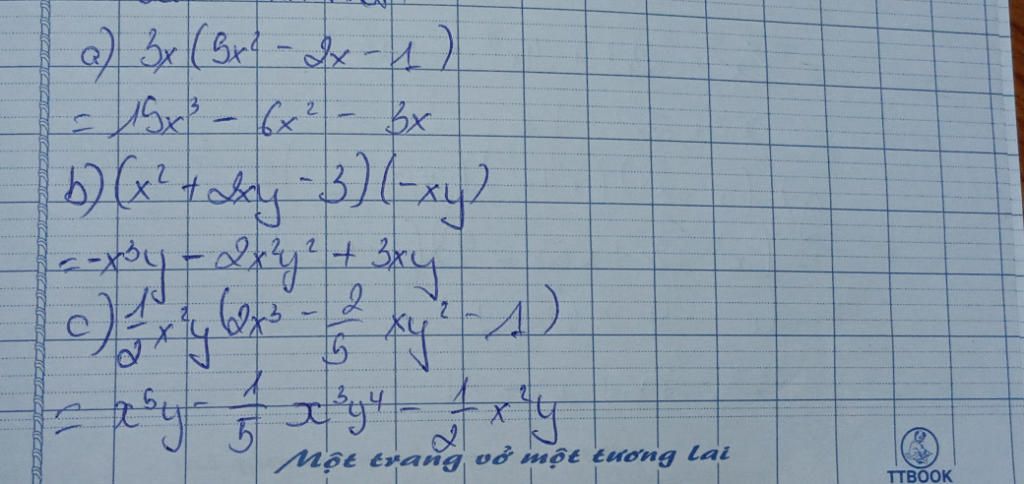 a) 3x(5x² - 2x - 1)
= 15x³ - 6x² - 3x
b) (x² + 2xy - 3)(-xy)
= -x³y - 2x²y² + 3xy
c) 1/2 x²y(2x³ - 2/5 xy² - 1)
= x⁵y - 1/5 x³y⁴ - 1/2 x²y
Một trang vở một tương lai
TTBOOK